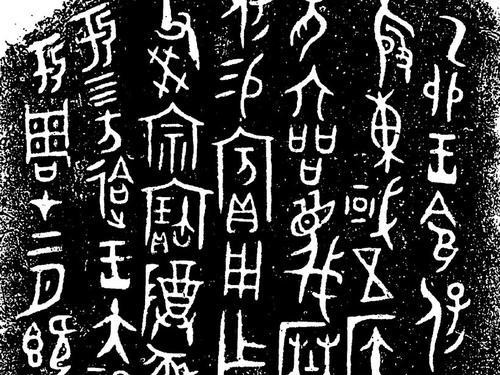 乙卯王令保
殷東或五侯
兄六品蔑曆
保易賓用乍
父癸宗寶尊
于四方迨王大
周才二月既